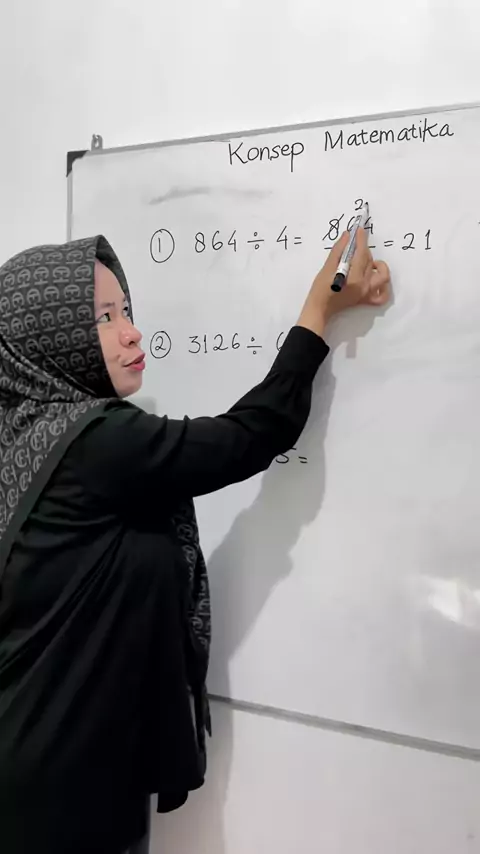 Konsep Matematika
2
① 864 ÷ 4 = 864 = 21
② 3126 ÷
5 =